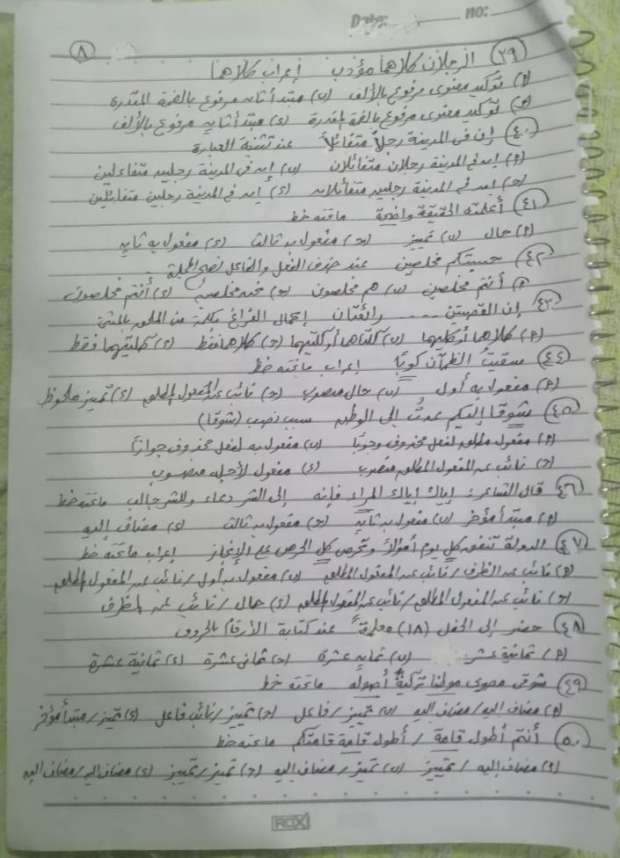 Date: no:
٨
(٣٩) الرجلان كلاهما مؤدب إعراب كلاهما
(أ) توكيد معنوى مرفوع بالألف (ب) مبتدأ ثان مرفوع بالضمة المقدرة
(ج) توكيد معنوى مرفوع بالضمة المقدرة (د) مبتدأ ثان مرفوع بالألف
(٤٠) إن فى المدينة رجلاً متفائلاً عند تثنية العبارة
(أ) إن فى المدينة رجلان متفائلان (ب) إن فى المدينة رجلين متفاءلين
(ج) إن فى المدينة رجلين متفائلان (د) إن فى المدينة رجلين متفائلين
(٤١) الحقيقة واضحة ما تحته خط
(أ) حال (ب) تمييز (ج) مفعول به ثالث (د) مفعول به ثان
(٤٢) حسبتكم مخلصين عند حذف الفعل والفاعل تصبح الجملة
(أ) أنتم مخلصين (ب) هم مخلصون (ج) مخلصين (د) أنتم مخلصون
(٤٣) إن القصتين .... رائعتان إكمال الفراغ بكلمة من الملحق بالمثنى
(أ) كلاهما أو كليهما (ب) كلتاهما أو كلتيهما (ج) كلاهما فقط (د) كلتيهما فقط
(٤٤) سقيت الظمآن كوبًا إعراب ما تحته خط
(أ) مفعول به أول (ب) حال منصوب (ج) نائب عن المفعول المطلق (د) تمييز ملحوظ
(٤٥) شوقًا إليكم عدت إلى الوطن سبب نصب (شوقًا)
(أ) مفعول مطلق لفعل محذوف وجوبًا (ب) مفعول به لفعل محذوف جوازًا
(ج) نائب عن المفعول المطلق منصوب (د) مفعول لأجله منصوب
(٤٦) قال الشاعر: إياك إياك المراء فإنه إلى الشر دعاء وللشر جالب ما تحته خط
(أ) مبتدأ مؤخر (ب) مفعول به ثان (ج) مفعول به ثالث (د) مضاف إليه
(٤٧) الدولة تنفق كل يوم أموالاً وتحرص كل الحرص على الإنجاز إعراب ما تحته خط
(أ) نائب عن الظرف / نائب عن المفعول المطلق (ب) مفعول به أول / نائب عن المفعول المطلق
(ج) نائب عن المفعول المطلق / نائب عن المفعول المطلق (د) حال / نائب عن الظرف
(٤٨) حضر إلى الحفل (١٨) معلمة عند كتابة الأرقام بالحروف
(أ) ثمانية عشر (ب) ثمان عشرة (ج) ثمانى عشرة (د) ثمانية عشرة
(٤٩) شوقى مصرى مولدًا تركية أصوله ما تحته خط
(أ) مضاف إليه / مضاف إليه (ب) تمييز / فاعل (ج) تمييز / نائب فاعل (د) تمييز / مبتدأ مؤخر
(٥٠) أنتم أطول قامة / أطول قامة قامتكم ما تحته خط
(أ) مضاف إليه / تمييز (ب) تمييز / مضاف إليه (ج) تمييز / تمييز (د) مضاف إليه / مضاف إليه
ROX